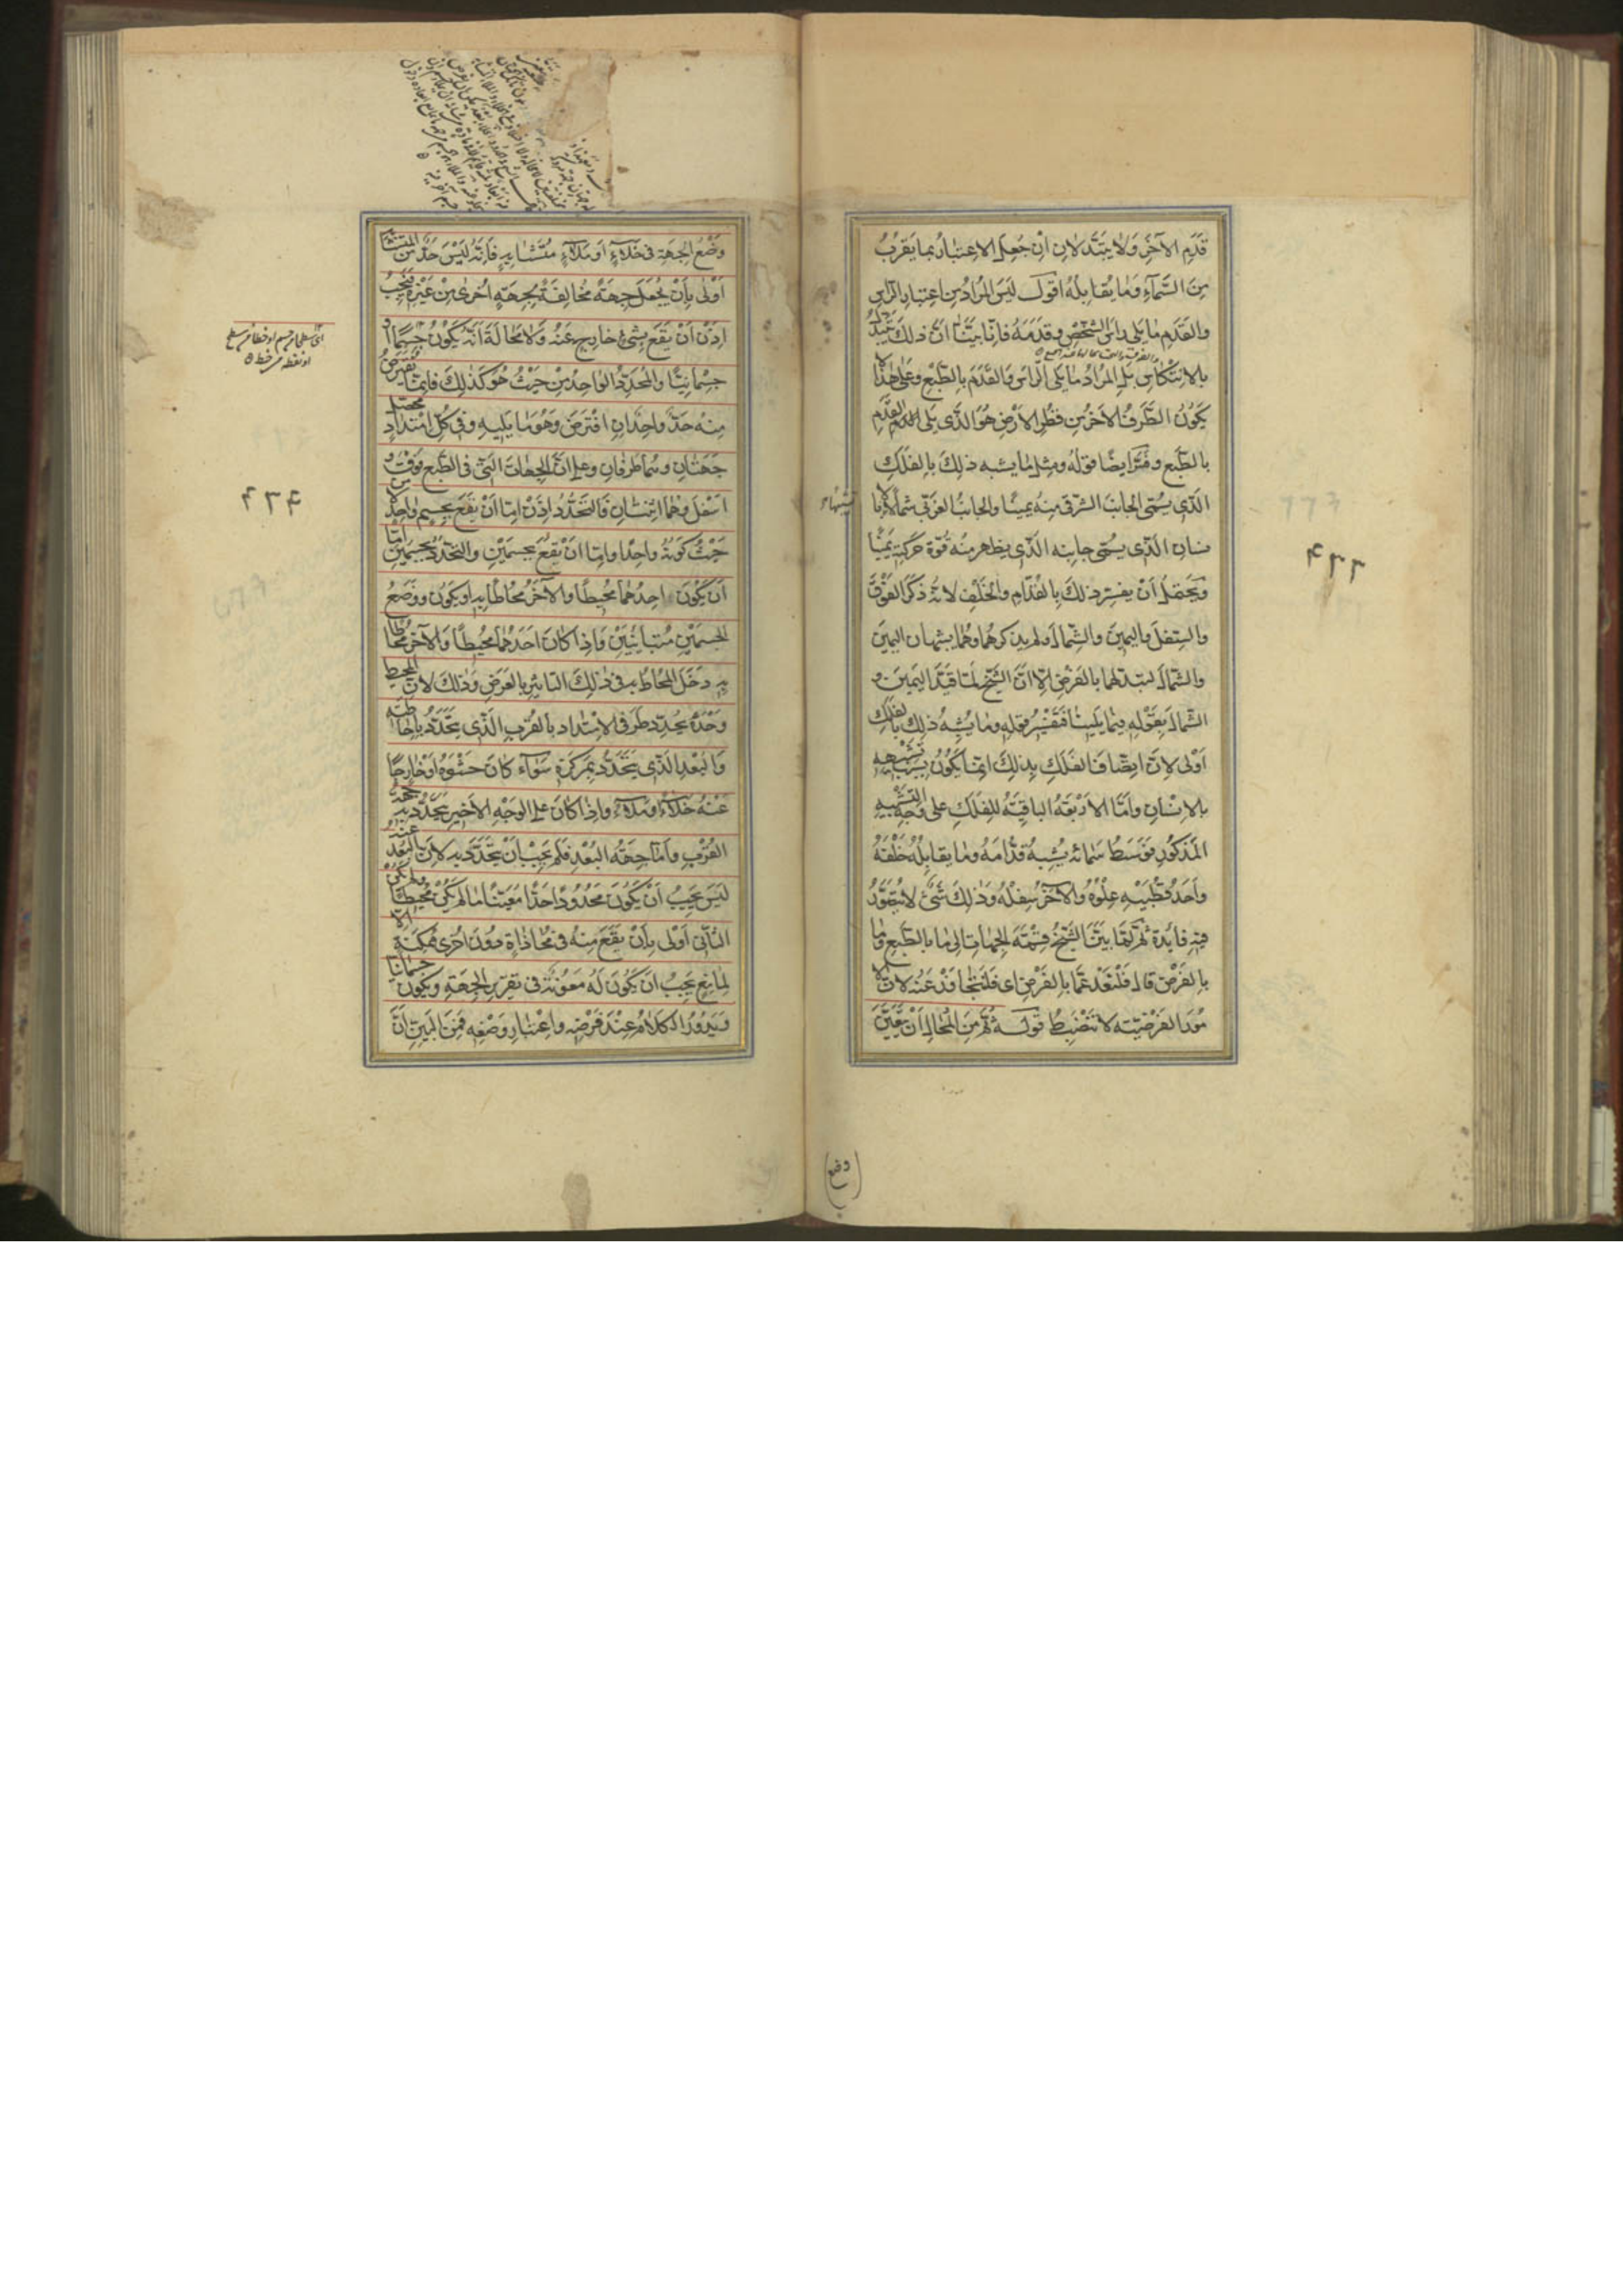 قدم الآخر ولا يتبدلان ان جعل الاعتبار بما يقرب
من السماء وما يقابله اقول ليس المراد من اعتبار الراس
والقدم ما يلى راس الشخص وقدمه فانا بينا ان ذلك يتبدل
بالانتكاس بل المراد ما يلى الراس والقدم بالطبع وعلى هذا لا
يكون الطرف الآخر من قطر الارض هو الذى يلى القدم
بالطبع وفسر ايضا قوله ومثل ما يشبه ذلك بالفلك
الذى يسمى الجانب الشرقى منه يمينا والجانب الغربى شمالا
نسان الذى يسمى جانبه الذى يظهر منه قوة حركته يمينا
ويحتمل ان يفسر ذلك بالقدام والخلف لانه ذكر الفوق
والسفل واليمين والشمال ولم يذكرهما وهما يشبهان اليمين
والشمال لتبدلهما بالفرض الا ان الشيخ لما قيد اليمين و
الشمال بقوله فيما يلينا فتفسير قوله وما يشبه ذلك بالفلك
اولى لان اتصاف الفلك بذلك انما يكون بسبب تشبيهه
بالانسان واما الاربعة الباقية للفلك على وجه التشبيه
المذكور فوسط سمائه يشبه قدامه وما يقابله خلفه
واحد قطبيه علوه والآخر سفله وذلك شىء لا يتصور
فيه فايدة ثم لما بين الشيخ قسمة الجهات الى ما بالطبع وما
بالفرض قال فلنعد عما بالفرض اى فلنتجاوز عنه لان الا
مور الفرضية لا تنضبط قوله ثم من المحال ان يتعين
(وضع)
وضع الجهة فى خلاء او ملاء متشابه فانه ليس حد من المتشابه
اولى بان يجعل جهة مخالفة لجهة اخرى من غيره فيجب
اذن ان يقع بشىء خارج عنه ولا محالة انه يكون جسما او
جسمانيا والمحدد الواحد من حيث هو كذلك فانما يفترض
منه حد واحد ان افترض وهو ما يليه وفى كل امتداد يحصل
جهتان وهما طرفان وعلى ان الجهات التى فى الطبع فوق و
اسفل وهما اثنتان فالتحدد اذن اما ان يقع بجسم واحد لا من
حيث كونه واحدا واما ان يقع بجسمين والتحدد بجسمين اما
ان يكون احدهما محيطا والآخر محاطا به او يكون ووضع
الجسمين متباينين واذا كان احدهما محيطا والآخر محاطا
به دخل المحاط به فى ذلك التاثير بالعرض وذلك لان المحيط
وحده يحدد طرفى الامتداد بالقرب الذى يتحدد باحاطته
والبعد الذى يتحدد بمركزه سواء كان حشوه او خارجا
عنه خلاء او ملاء واذا كان على الوجه الاخير يتحدد به جهة
القرب واما جهة البعد فلم يجب ان يتحدد به لان البعد عنه
ليس يجب ان يكون محدودا حدا معينا ما لم يكن محيطا ولم يكن
الثانى اولى بان يقع منه فى محاذاة دون اخرى ممكنة الا
لمانع يجب ان يكون له معونة فى تقرير الجهة ويكون جسمانيا
ويدور الكلام عند فرضه واعتبار وضعه فمن البين ان
اى سطحا من جسم او خطا من سطح
او نقطه من خط